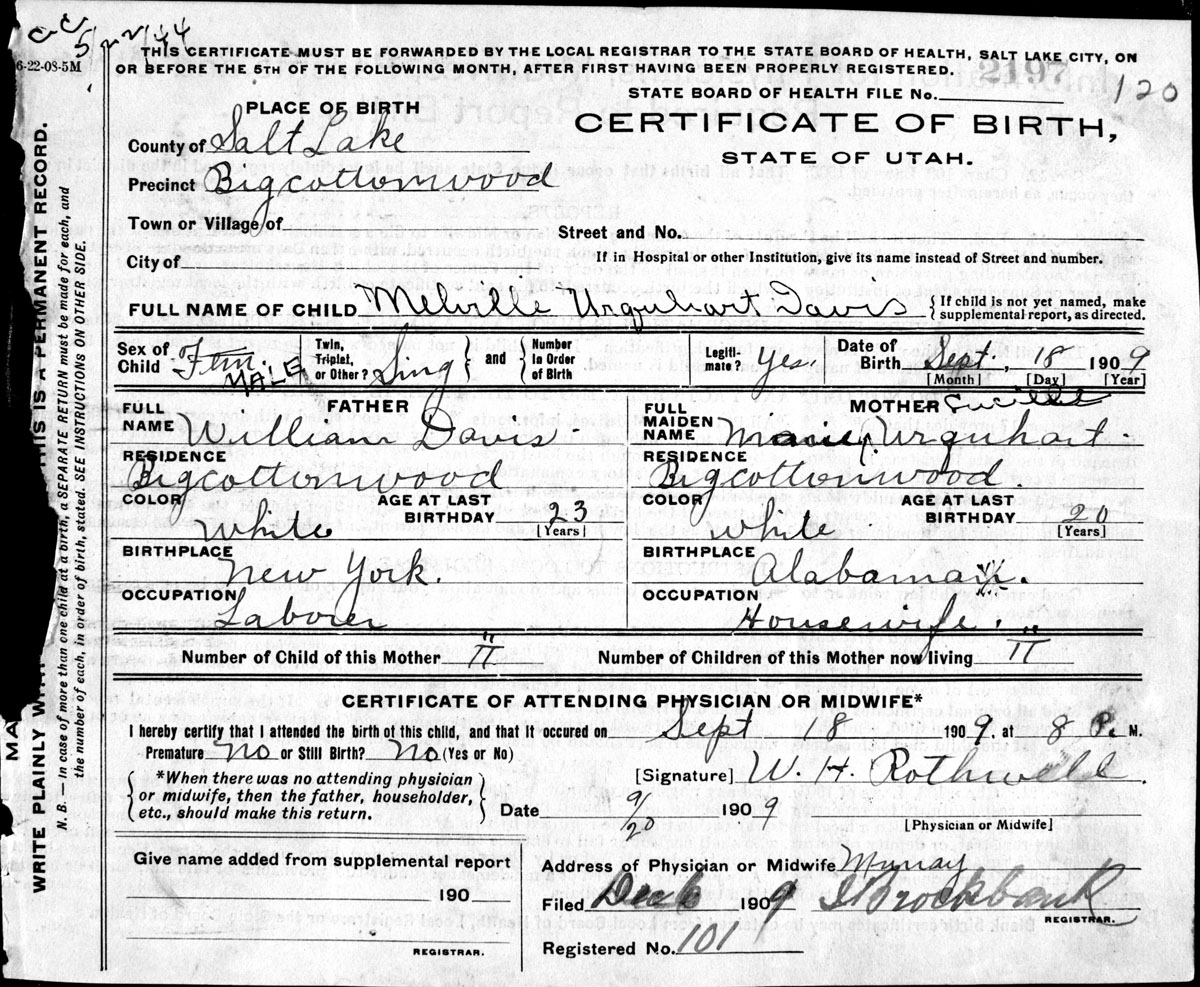 5/22/44
6-22-08-5M
THIS CERTIFICATE MUST BE FORWARDED BY THE LOCAL REGISTRAR TO THE STATE BOARD OF HEALTH, SALT LAKE CITY, ON
OR BEFORE THE 5TH OF THE FOLLOWING MONTH, AFTER FIRST HAVING BEEN PROPERLY REGISTERED.
2197
120
STATE BOARD OF HEALTH FILE No.
PLACE OF BIRTH
CERTIFICATE OF BIRTH,
STATE OF UTAH.
County of Salt Lake
Precinct Bigcottonwood
Town or Village of
Street and No.
City of
If in Hospital or other Institution, give its name instead of Street and number.
FULL NAME OF CHILD Melville Urquhart Davis {If child is not yet named, make supplemental report, as directed.
Sex of Child Fem. MALE Twin, Triplet, or Other? Sing } and { Number in Order of Birth Legiti-mate? Yes Date of Birth Sept. 18 1909
[Month] [Day] [Year]
FATHER
MOTHER
FULL NAME William Davis
FULL MAIDEN NAME Lucille Urquhart
RESIDENCE Bigcottonwood
RESIDENCE Bigcottonwood.
COLOR White AGE AT LAST BIRTHDAY 23 [Years]
COLOR White AGE AT LAST BIRTHDAY 20 [Years]
BIRTHPLACE New York.
BIRTHPLACE Alabama
OCCUPATION Laborer
OCCUPATION Housewife.
Number of Child of this Mother II
Number of Children of this Mother now living II
CERTIFICATE OF ATTENDING PHYSICIAN OR MIDWIFE*
I hereby certify that I attended the birth of this child, and that it occured on Sept 18 1909, at 8 P. M.
Premature No or Still Birth? No (Yes or No)
*When there was no attending physician or midwife, then the father, householder, etc., should make this return.
[Signature] W. H. Rothwell.
Date 9/20 1909
[Physician or Midwife]
Give name added from supplemental report
190
REGISTRAR.
Address of Physician or Midwife Murray
Filed Dec 6 1909 J Brockbank
REGISTRAR.
Registered No. 101
WRITE PLAINLY
THIS IS A PERMANENT RECORD.
N. B. — In case of more than one child at a birth, a SEPARATE RETURN must be made for each, and
the number of each, in order of birth, stated. SEE INSTRUCTIONS ON OTHER SIDE.